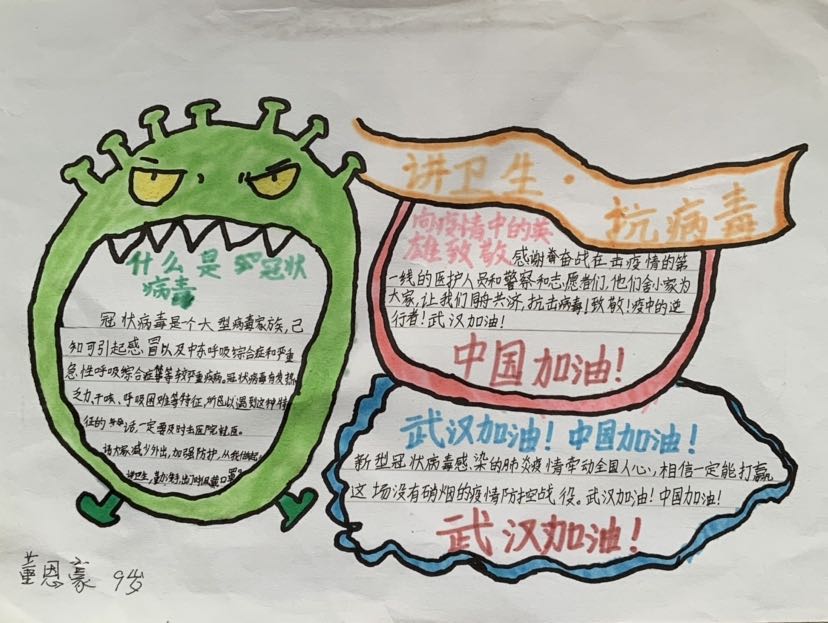 讲卫生·抗病毒
什么是 冠状
病毒
冠状病毒是个大型病毒家族,已
知可引起感冒以及中东呼吸综合症和严重
急性呼吸综合症等较严重疾病。冠状病毒有发热
乏力、干咳、呼吸困难等特征,所以遇到这种特
征的话,一定要及时去医院就医。
请大家减少外出,加强防护,从我做起
讲卫生,勤洗手,出门时佩戴口罩。
向疫情中的英
雄致敬
感谢奋战在击疫情的第
一线的医护人员和警察和志愿者们,他们舍小家为
大家,让我们同舟共济,抗击病毒!致敬!疫中的逆
行者!武汉加油!
中国加油!
武汉加油!中国加油!
新型冠状病毒感染的肺炎疫情牵动全国人心,相信一定能打赢
这场没有硝烟的疫情防控战役。武汉加油!中国加油!
武汉加油!
董恩豪 9岁